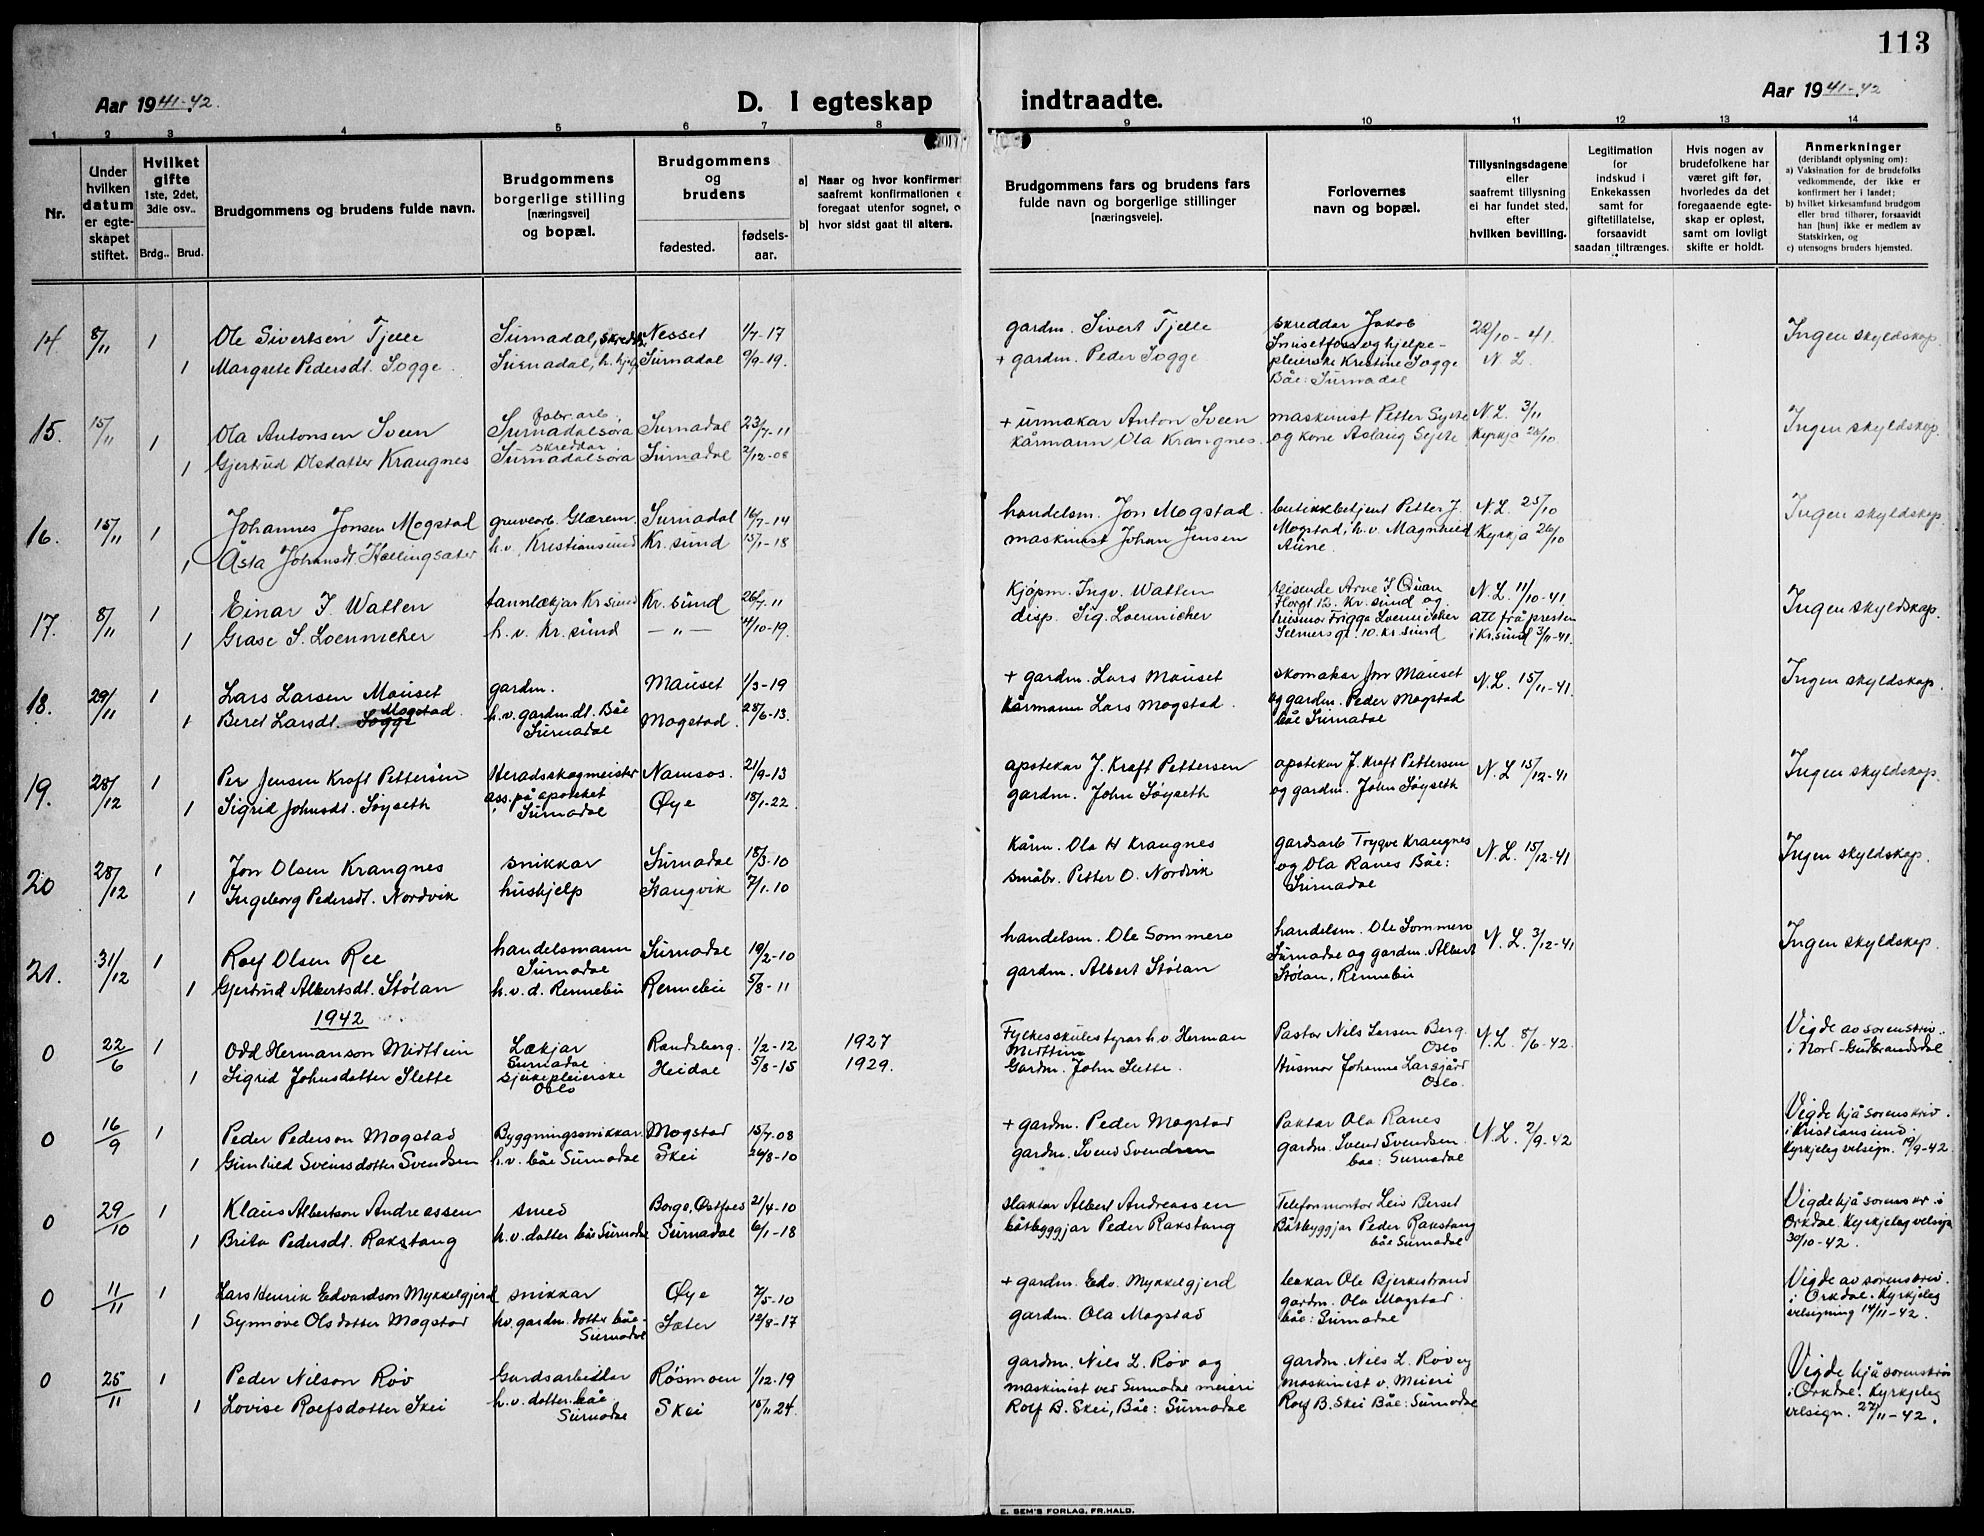 113
Aar 1941-42.
D. I egteskap indtraadte.
Aar 1941-42
1 2 3 4 5 6 7 8 9 10 11 12 13 14
Nr.
Under hvilken datum er egteskapet stiftet.
Hvilket gifte 1ste, 2det, 3die osv..
Brdg.. Brud.
Brudgommens og brudens fulde navn.
Brudgommens borgerlige stilling [næringsvei] og bopæl.
Brudgommens og brudens
fødested. fødsels-aar.
a] Naar og hvor konfirmert
saafremt konfirmationen
foregaat utenfor sognet,
b] hvor sidst gaat til alters.
Brudgommens fars og brudens fars fulde navn og borgerlige stillinger [næringsveie].
Forlovernes navn og bopæl.
Tillysningsdagene eller saafremt tillysning ei har fundet sted, efter hvilken bevilling.
Legitimation for indskud i Enkekassen samt for giftetillatelse, forsaavidt saadan tiltrænges.
Hvis nogen av brudefolkene har været gift før, hvorledes da det foregaaende egteskap er opløst, samt om lovligt skifte er holdt.
Anmerkninger
(deriblandt oplysning om):
a) Vaksination for de brudefolks vedkommende, der ikke er konfirmert her i landet;
b) hvilket kirkesamfund brudgom eller brud tilhører, forsaavidt han [hun] ikke er medlem av Statskirken, og
c) utensogns bruders hjemsted.
14 8/11 1 Ole Sivertsen Tjelle Surnadal, skreddar Nesset 1/7-17 gardm. Sivert Tjelle skreddar Jakob Snusetfoss og hjelpe- 22/10-41. Ingen skyldskap.
1 Margrete Pedersdt. Sogge. Surnadal, h. hjelp Surnadal 9/9-19. + gardm. Peder Sogge pleierske Kristine Sogge N L.
Båe: Surnadal
15. 15/11 1 Ola Antonsen Sveen fabr. arb. Surnadalsøra Surnadal 23/7-11 + urmakar Anton Sveen maskinist Petter N.L. 3/11 Ingen skyldskap.
1 Gjertrud Olsdatter Krangnes skreddar Surnadalsøra Surnadal 2/12-08 kårmann Ola Krangnes. og kone Aslaug Kyrkja 26/10
16. 15/11 1 Johannes Jonsen Mogstad gruvearb. Glærem. Surnadal 16/7-14 handelsm. Jon Mogstad butikkbetjent Petter J. N.L. 25/10 Ingen skyldskap.
1 Åsta Johansdt. Hællingsæter h.v. Kristiansund Kr. sund 15/1-18 maskinist Johan Jensen Mogstad, h.v. Magnhild Kyrkja 26/10
Aune.
17. 8/11 1 Einar I. Watten tannlækjar Kr sund Kr. sund 26/7-11 Kjøpm. Ingv. Watten reisende Arne S. N.L. 11/10-41. Ingen skyldskap.
12. Kr. sund og
1 Grase S. Loennicher h.v. Kr. sund —"— 4/10-19. disp. Sig. Loennicher husmor Frigga Loennicher att frå presten
Selmersgt. 10. Kr sund i Kr.sund 3/11-41.
18. 29/11 1 Lars Larsen Mauset gardm. Mauset 1/3-19 + gardm. Lars Mauset skomakar Jon Mauset N.L. 15/11-41. Ingen skyldskap.
1 Beret Larsdt. Sogge Mogstad h.v. gardm.dt. Båe Surnadal Mogstad. 25/6-13. Kårmann Lars Mogstad. og gardm. Peder Mogstad
båe Surnadal
19. 28/12 1 Per Jensen Kraft Pettersen Heradsskogmeister Namsos. 21/9-13 apotekar J. Kraft Pettersen apotekar J. Kraft Pettersen N.L 15/12-41 Ingen skyldskap.
1 Sigrid Johnsdt. Søyseth ass. på apoteket Surnadal Øye 18/1-22 gardm. John Søyseth og gardm. John Søyseth
20 28/12 1 Jon Olsen Krangnes snikkar Surnadal 18/3-10 Kårm. Ola H Krangnes gardsarb Trygve Krangnes N.L. 15/12-41 Ingen skyldskap.
1 Ingeborg Pedersdt. Nordvik hushjelp Stangvik 7/1-10 småbr. Petter O. Nordvik og Ola Ranes Båe:
Surnadal
21. 31/12 1 Rolf Olsen Ree handelsmann Surnadal Surnadal 19/2-10 handelsm. Ole Sommero handelsm. Ole Sommero N. L. 3/12-41 Ingen skyldskap.
1 Gjertrud Albertsdt. Stølan h.v.d. Rennebu Rennebu 5/8-11 gardm. Albert Stølan Surnadal og gardm. Albert
Stølan, Rennebu
1942
0 22/6 1 Odd Hermanson Midttun Lækjar Surnadal Randaberg. 1/2-12 1927 Fylkesskulestyrar h.v. Herman Midttun Pastor Nils Larsen Berg. Oslo N.L 8/6-42. Vigde av sorenskriv.
1 Sigrid Johnsdatter Slette sjukepleierske Oslo Heidal 5/8-15 1929. Gardm. John Slette. Husmor Johanna Larsgård Oslo. i Nord-Gudbrandsdal
0 16/9 1 Peder Pederson Mogstad Byggningssnikkar Mogstad 15/7-08 + gardm. Peder Mogstad Paktar Ola Ranes N.L. 2/9-42 Vigde hjå sorenskriv.
1 Gunhild Sveinsdotter Svendsen h.v. båe Surnadal Skei 26/8-10 gardm. Svend Svendsen gardm. Svend Svendsen. båe: Surnadal i Kristiansund. Kyrkjeleg velsign. 19/9-42
0 29/10 1 Klaus Albertson Andreassen smed Borge, Østfold 21/4-10 slaktar Albert Andreassen Telefonmontør Leif Berset Vigde hjå sorenskr. i
1 Brita Pedersdt. Rakstang h.v. dotter båe Surnadal Surnadal 6/1-18 båtbyggjar Peder Rakstang Båtbyggjar Peder Rakstang båe Surnadal Orkdal. Kyrkjeleg velsign 30/10-42.
0 11/11 1 Lars Henrik Edvardson Mykkelgjerd snikkar Øye 7/5-10 + gardm. Edv. Mykkelgjerd Ole Bjerkestrand Vigde av sorenskriv.
1 Synnøve Olsdotter Mogstad hv. gardm. dotter båe- Surnadal Sæter 12/8-17 gardm. Ola Mogstad gardm. Ola Mogstad. båe: Surnadal i Orkdal. Kyrkjeleg velsigning 14/11-42.
0 25/11 1 Peder Nilson Røv Gardsarbeidar Røsmoen 1/12-19 gardm. Nils L. Røv og gardm. Nils L. Røv og Vigde hjå sorenskriv
1 Lovise Rolfsdotter Skei h.v. dotter. båe Surnadal Skei 15/11 24. maskinist ved Surnadal meieri maskinist v. Meieri i Orkdal. Kyrkjeleg
Rolf B. Skei, Båe: Surnadal Rolf B. Skei Båe: Surnadal velsign. 27/11-42.
E. SEM'S FORLAG, FR.HALD.